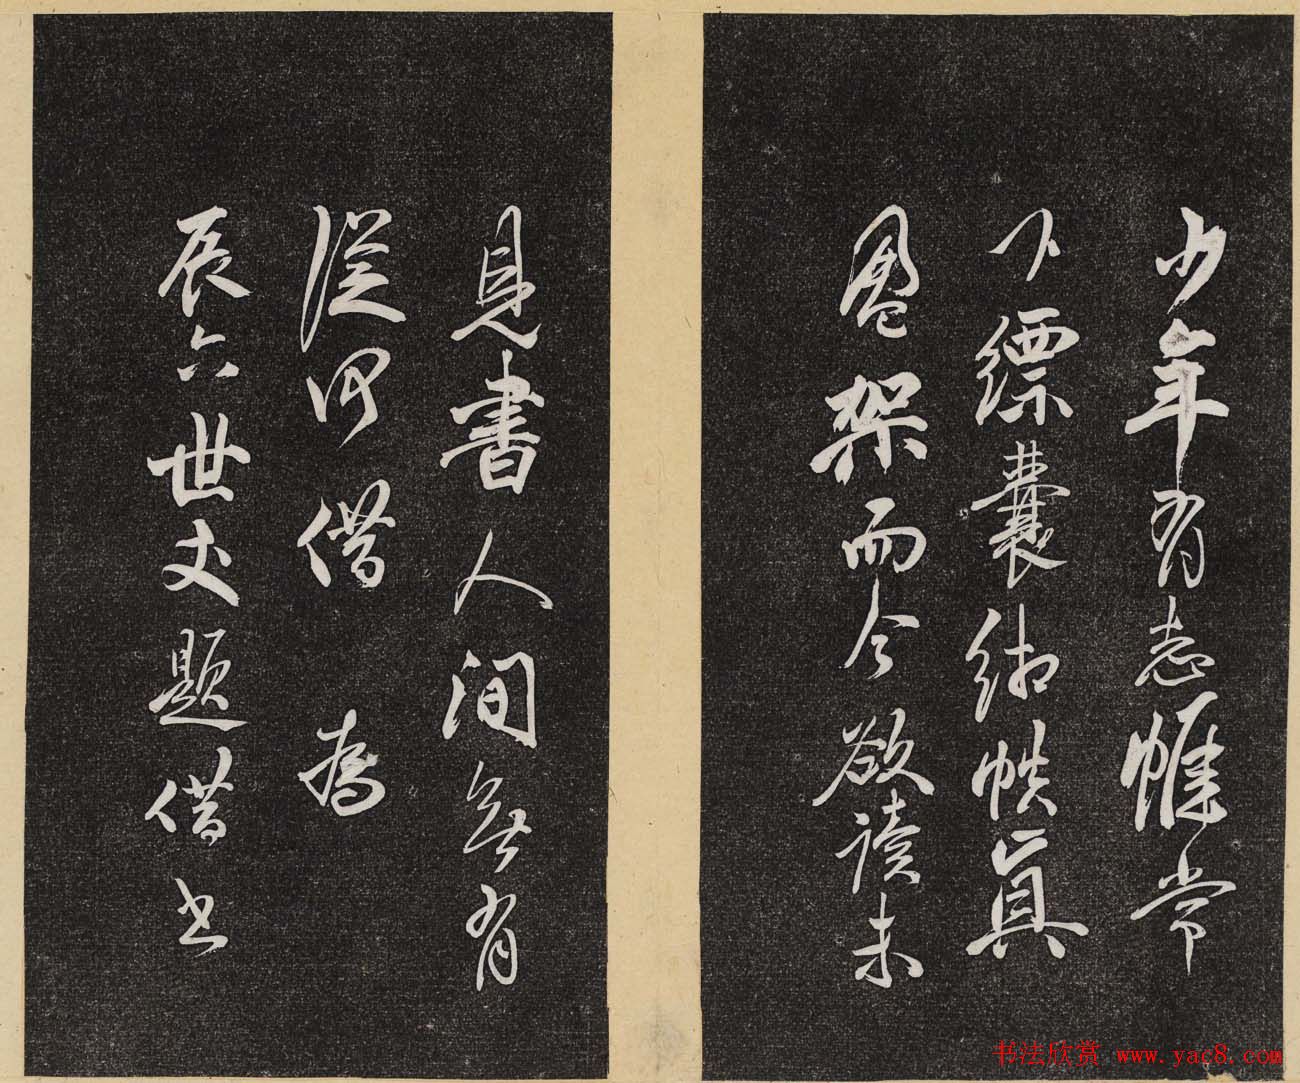 少年有志帷常
下縹囊緗帙真
盈架而今欲讀未
見書人間無有
從何借 為
辰六世丈題借書
书法欣赏 www.yac8.com